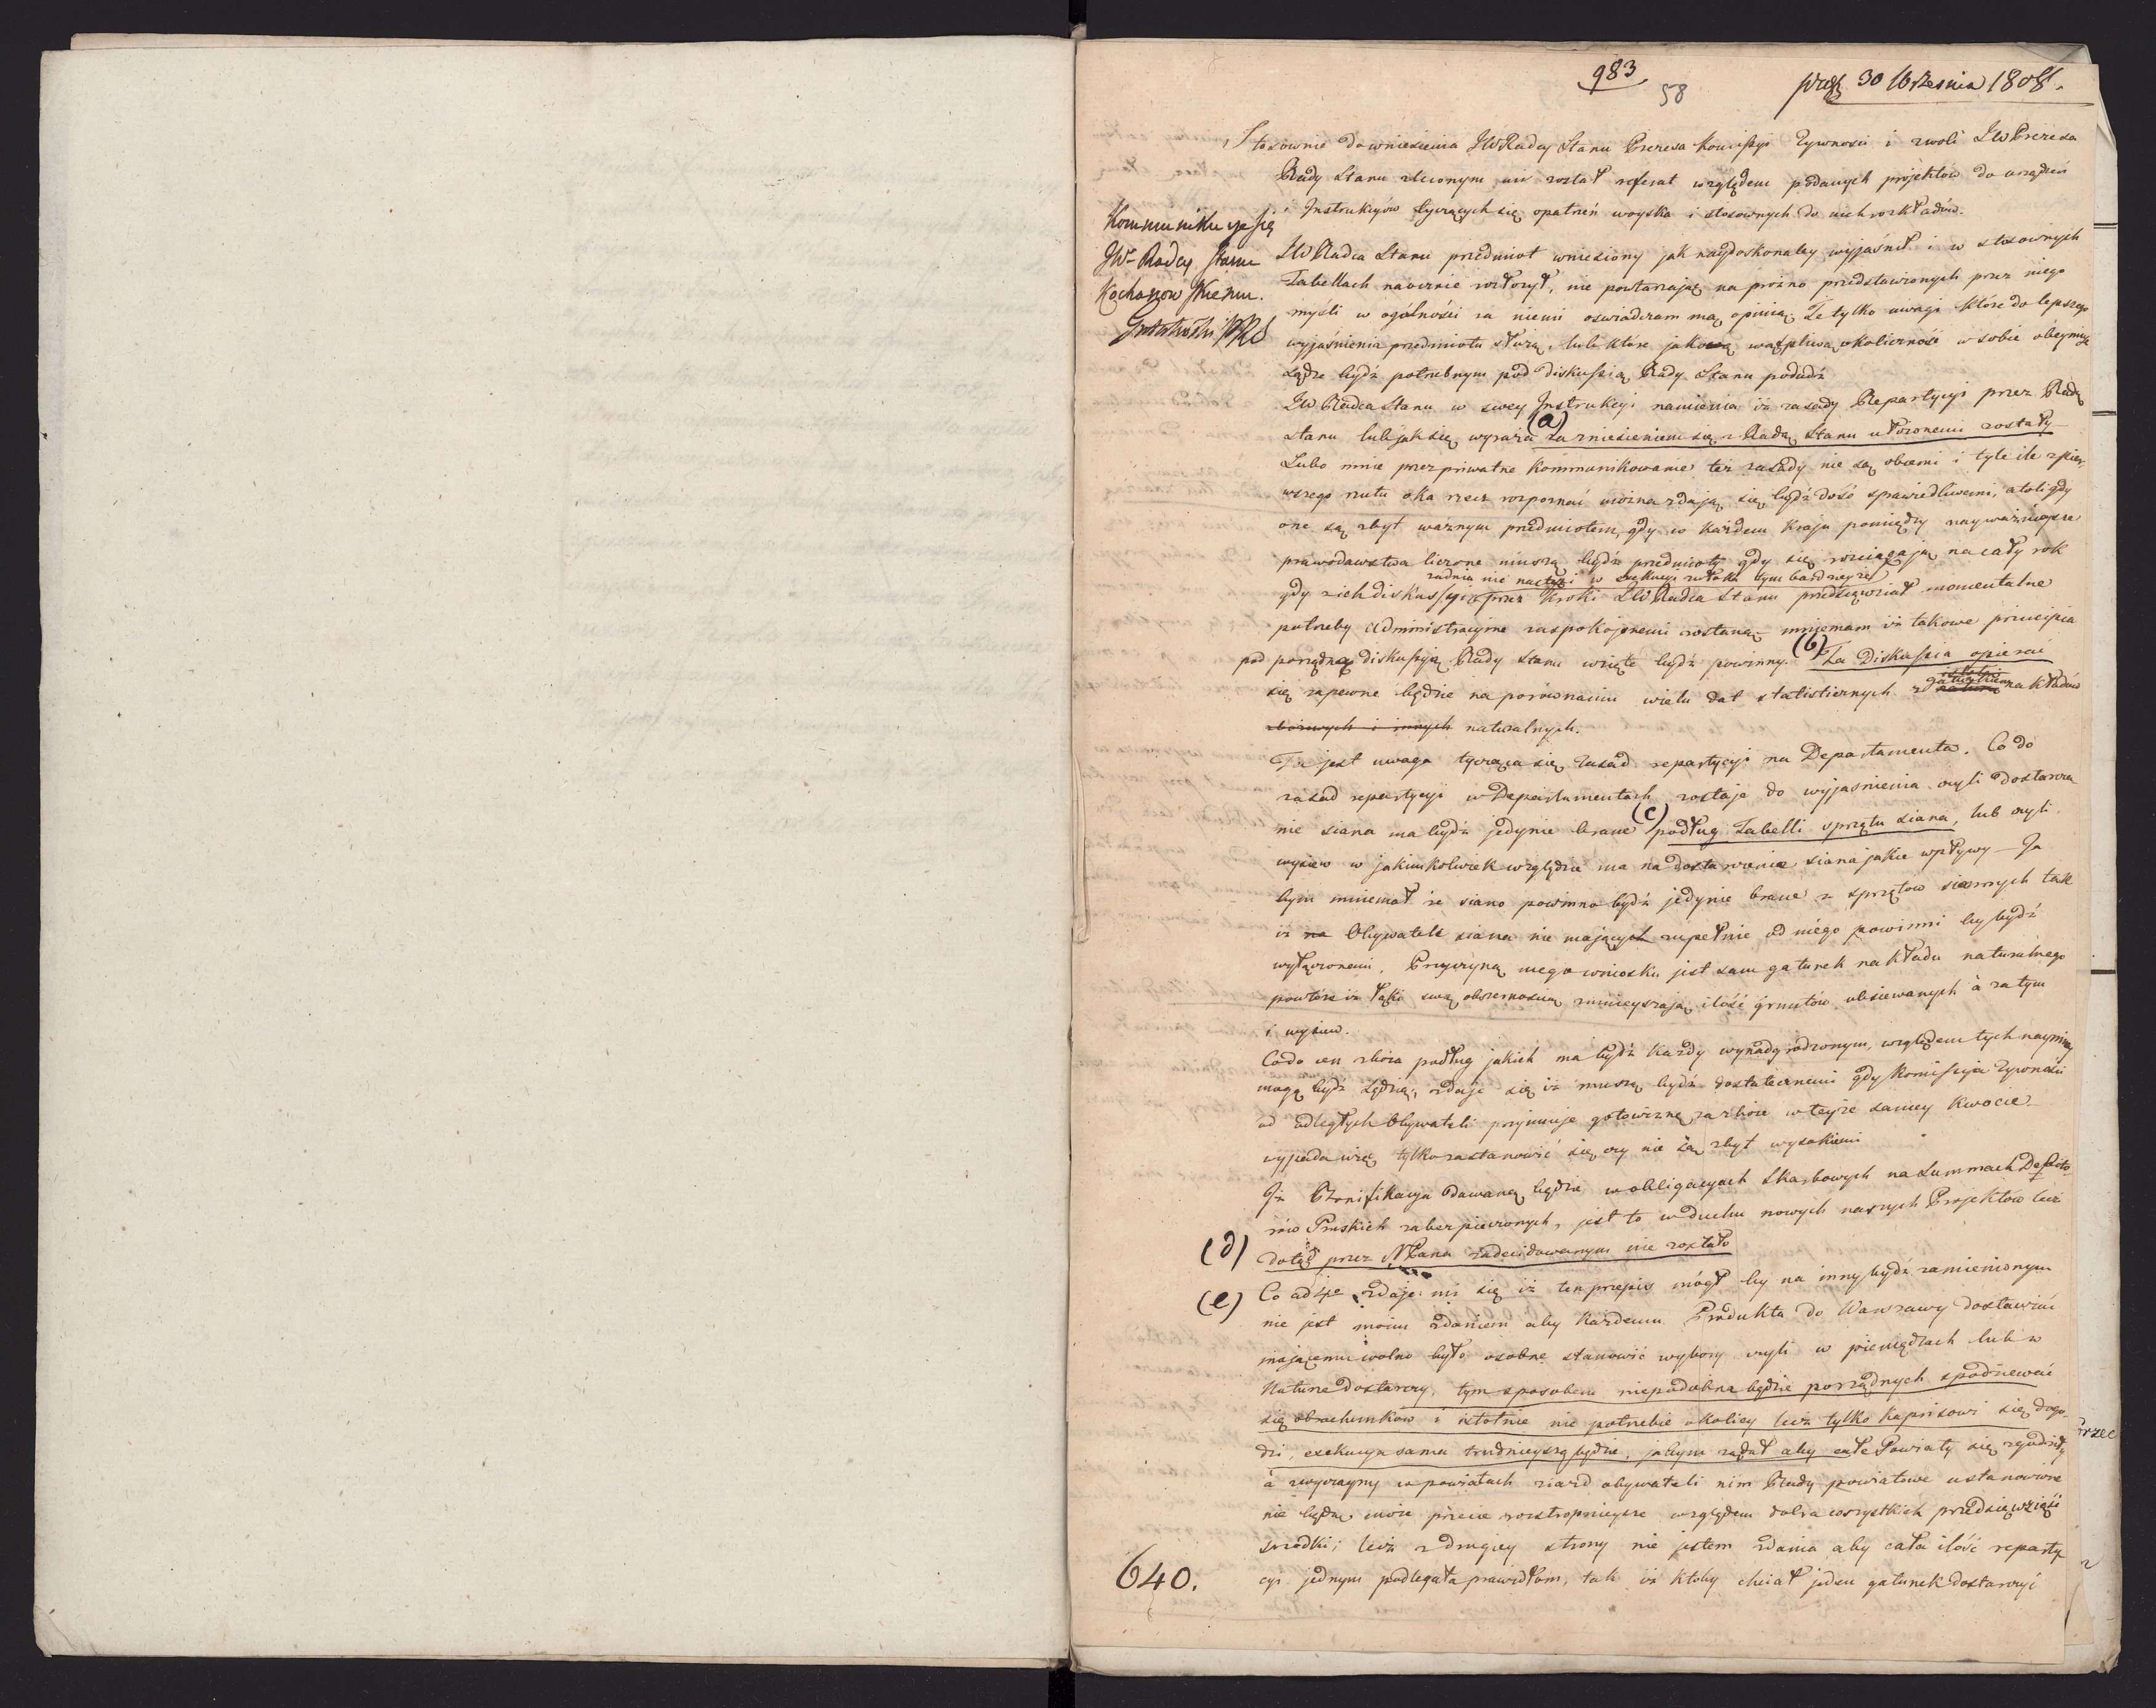 983
58
30 Wrzesnia 1808.
Stosownie do wniesienia JW Radcy Stanu Prezesa Komissyi Żywnosci i z woli JW Prezesa
Rady Stanu zleconym mi został referat względem podanych projektów do urządzeń
i Instrukcyów tyczących się opatrzeń woyska i stosownych do nich rozkładów.
Kommunikuje się
JW Radcy Stanu
Kochanowskiemu.
JW Radca Stanu przedmiot wniesiony jak naydoskonaley wyjaśnił i w stosownych
Tabellach naocznie rozłożył, nie powtarzając na prożno przedstawionych przez niego
myśli w ogólności za niemi oswiadczam mą opinią. Te tylko uwagi które do lepszego
wyjaśnienia przedmiotu służą, lub które jakową wątpliwą okoliczność w sobie obeymują
sądzę bydź potrzebnym pod diskussią Rady Stanu poddadź
JW Radca Stanu w swey Instrukcyi namienia iż zasady Repartycyi przez Radę
(a)
Stanu lub jak się wyraża za zniesieniem się z Radą Stanu ułożonemi zostały
Lubo mnie przez priwatne kommunikowanie też zasady nie są obcemi i tyle ile z pier-
wszego rzutu oka rzecz rozpoznać można zdają się bydź dość sprawiedliwemi, atoli gdy
one są zbyt ważnym przedmiotem, gdy w każdem kraju pomiędzy nayważnieysze
prawodawstwa liczone muszą bydź przedmioty gdy się rozciągają na cały rok
żadna nie nastąpi w exekucyi zwłoka tym bardziey że
gdy z ich diskussyi przez kroki JW Radca Stanu przedsięwziął momentalne
potrzeby administracyjne zaspokojonemi zostaną mniemam iż takowe principia
(b)
pod porządną diskussyją Rady Stanu wzięte bydź powinny. Ta Diskussia opierać
się zapewne będzie na porównaniu wielu dat statisticznych z nakładów
zbożowych i innych naturalnych.
Ta jest uwaga tycząca się zasad repartycyi na Departamenta. Co do
zasad repartycyi w Departamentach zostaje do wyjasnienia czyli dostarcza
(c)
nie siana ma bydź jedynie brane podług Tabelli sprzętu siana, lub czyli
wysiew w jakimkolwiek względzie ma na dostarczenie siana jakie wpływy – Ja
bym mniemał że siano powinno bydź jedynie brane z sprzętow siennych tak
iż na Obywatele siana nie mających zupełnie od niego powinni by bydź
wyłączonemi. Przyczyną mego wniosku jest sam gatunek nakładu naturalnego
powtóre iż łąki swą obszernoscią zmnieyszają ilość gruntów obsiewanych à za tym
i wysiew.
Co do cen zboża podług jakich ma bydź każdy wynadgrodzonym, względem tych nayminiey
mogę bydź sędzią, zdaje się iż muszą bydź dostatecznemi gdy Komissyja Żywności
od odległych Obywateli przyimuje gotowiznę za zboże w teyże samey kwocie
wypada więc tylko zastanowić się czy nie są zbyt wysokiemi
Iż Bonifikacya dawana będzie w obligacyach Skarbowych na Summach Depozyto-
rów Pruskich zabezpieczonych, jest to w duchu nowych naszych Projektow lecz
(d) dotąd przez N Pana zadecidowanym nie zostało
(e) Co ad 4e zdaje mi się iż ten przepis mógł by na inny bydź zamienionym
nie jest moim zdaniem aby każdemu Produkta do Warszawy dostawiać
mającemu wolno było osobne stanowić wybory czyli w pieniędzach lub w
Naturze dostarczy, tym sposobem niepodobna będzie porządnych spodziewać
się obrachunkow i istotnie nie potrzebie okolicy lecz tylko kaprisowi się dogo-
dzi, exekucya sama trudnieyszą będzie, jabym żądał aby całe Powiaty się zgodziły
à zwyczayny w powiatach ziazd obywateli nim Rady powiatowe ustanowione
nie będą może przecie rozstropnieysze względem dobra wszystkich przedsięwziąść
srzodki; lecz z drugiey strony nie jestem zdania aby cała ilość reparty-
cyi jednym podlegała prawidłom, tak iż ktoby chciał jeden gatunek dostarczyć
640.
Przec